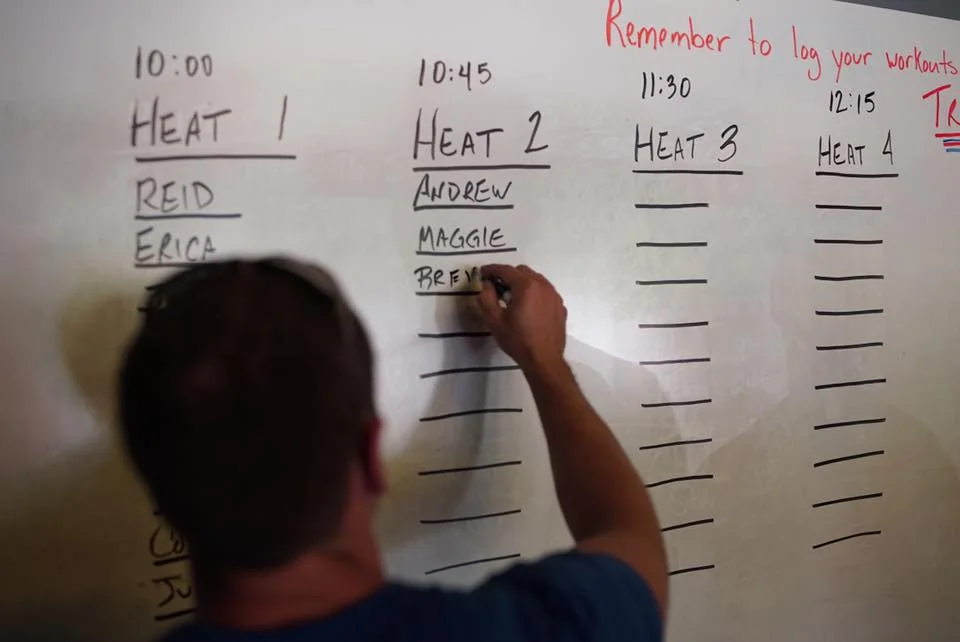 Remember to log your workouts
10:00
HEAT 1
REID
ERICA
10:45
HEAT 2
ANDREW
MAGGIE
BREV
11:30
HEAT 3
12:15
HEAT 4